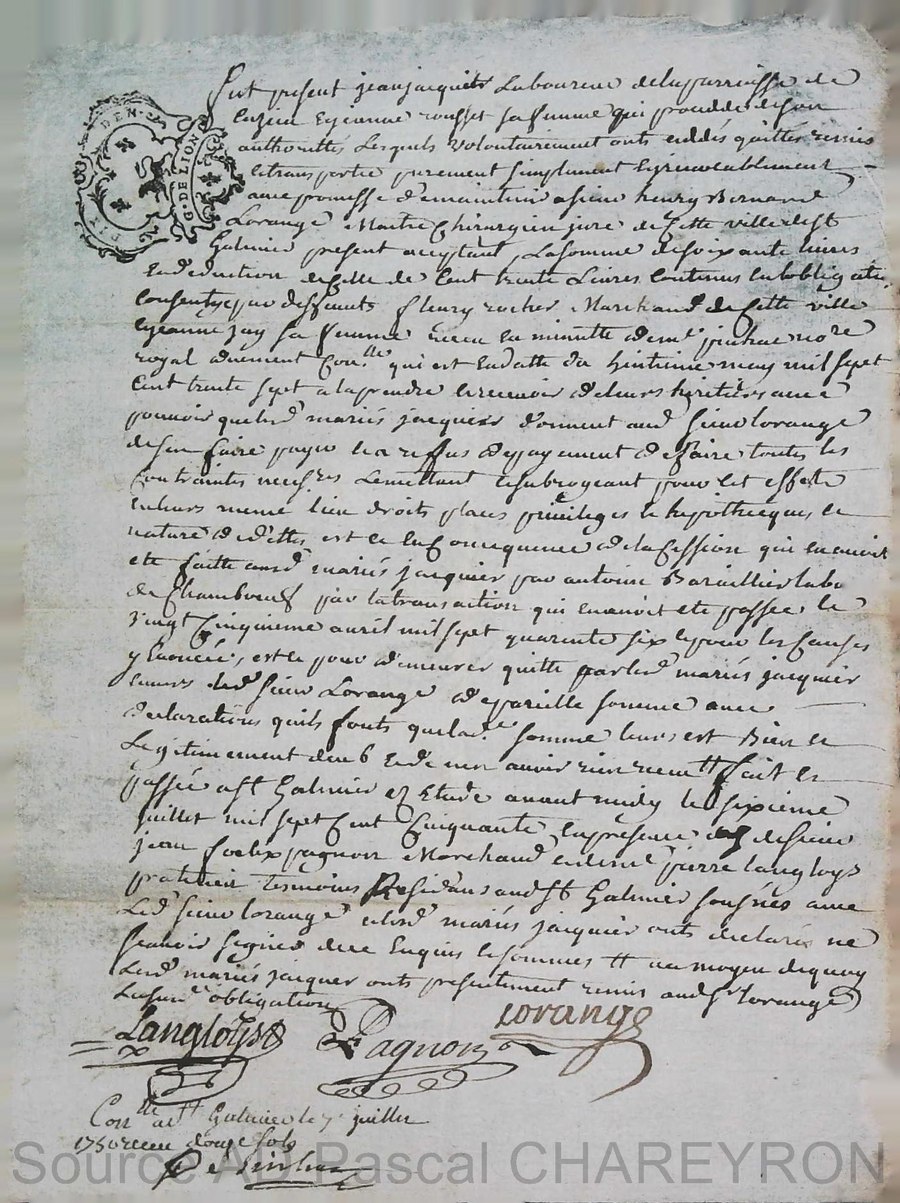 FIL DEN.
G. DE LION
Fut present jean jacquier Laboureur de la parroisse de
et jeanne rousset sa femme qui procedde de son
authorittes Lesquels volontairement onts ceddés quittés remis
et transportée purement simplement et irrevocablement
avec promesse de maintenir a sieur henry Bernard
Lorange Maitre Chirurgien juré de Cette ville de st
Galmier present acceptant, La somme de soixante livres
en deduction de Celle de Cent trente Livres Contenus en lobligation
Consentye par deffunts fleury rocher Marchand de Cette ville
et jeanne jay sa femme receu la minutte de me pinhac nore
royal duement Conlle qui est en datte du huitieme may mil sept
Cent trente sept a la prendre et recevoir de leurs hyritiers avec
pouvoir que lesd mariés jacquier donnent aud sieur lorange
de sen faire payer et a reffus de payement de faire toutes les
Contraintes necessres Le mettant et subrogeant pour cet effet
en leurs meme lieu droits places privileges et hipotheques et
nature de dettes, est ce en Consequence de la Cession qui en avoit
ete faitte ausd mariés jacquier par antoine Baraillier labo
de Chambœuf par la transaction qui en avoit ete passée le
vingt Cinquieme avril mil sept quarente six et pour les Causes
y enoncée, est ce pour demeurer quitte par lesd mariés jacquier
envers led sieur Lorange de pareille somme avec
declarations quils fonts que lade somme leurs est Bien et
Legitimement deub et de nen avoir rien receu tt fait et
passée a st Galmier ez Etude avant midy le sixieme
juillet mil sept Cent Cinquante en presence de sieur
jean foelix pagnon Marchand et de me pierre langloys
praticien tesmoins Residans aud st Galmier sousnés avec
Led sieur lorange et lesd mariés jacquier onts declarés ne
scavoir signer de ce Enquis et sommes tt au moyen de quoy
Lesd mariés jacquier onts presentement remis aud sr lorange
La susde obligation
Langloys Pagnon lorange
Conlle a st Galmier le 7e juillet
1750 receu douze sols
Source AD Pascal CHAREYRON